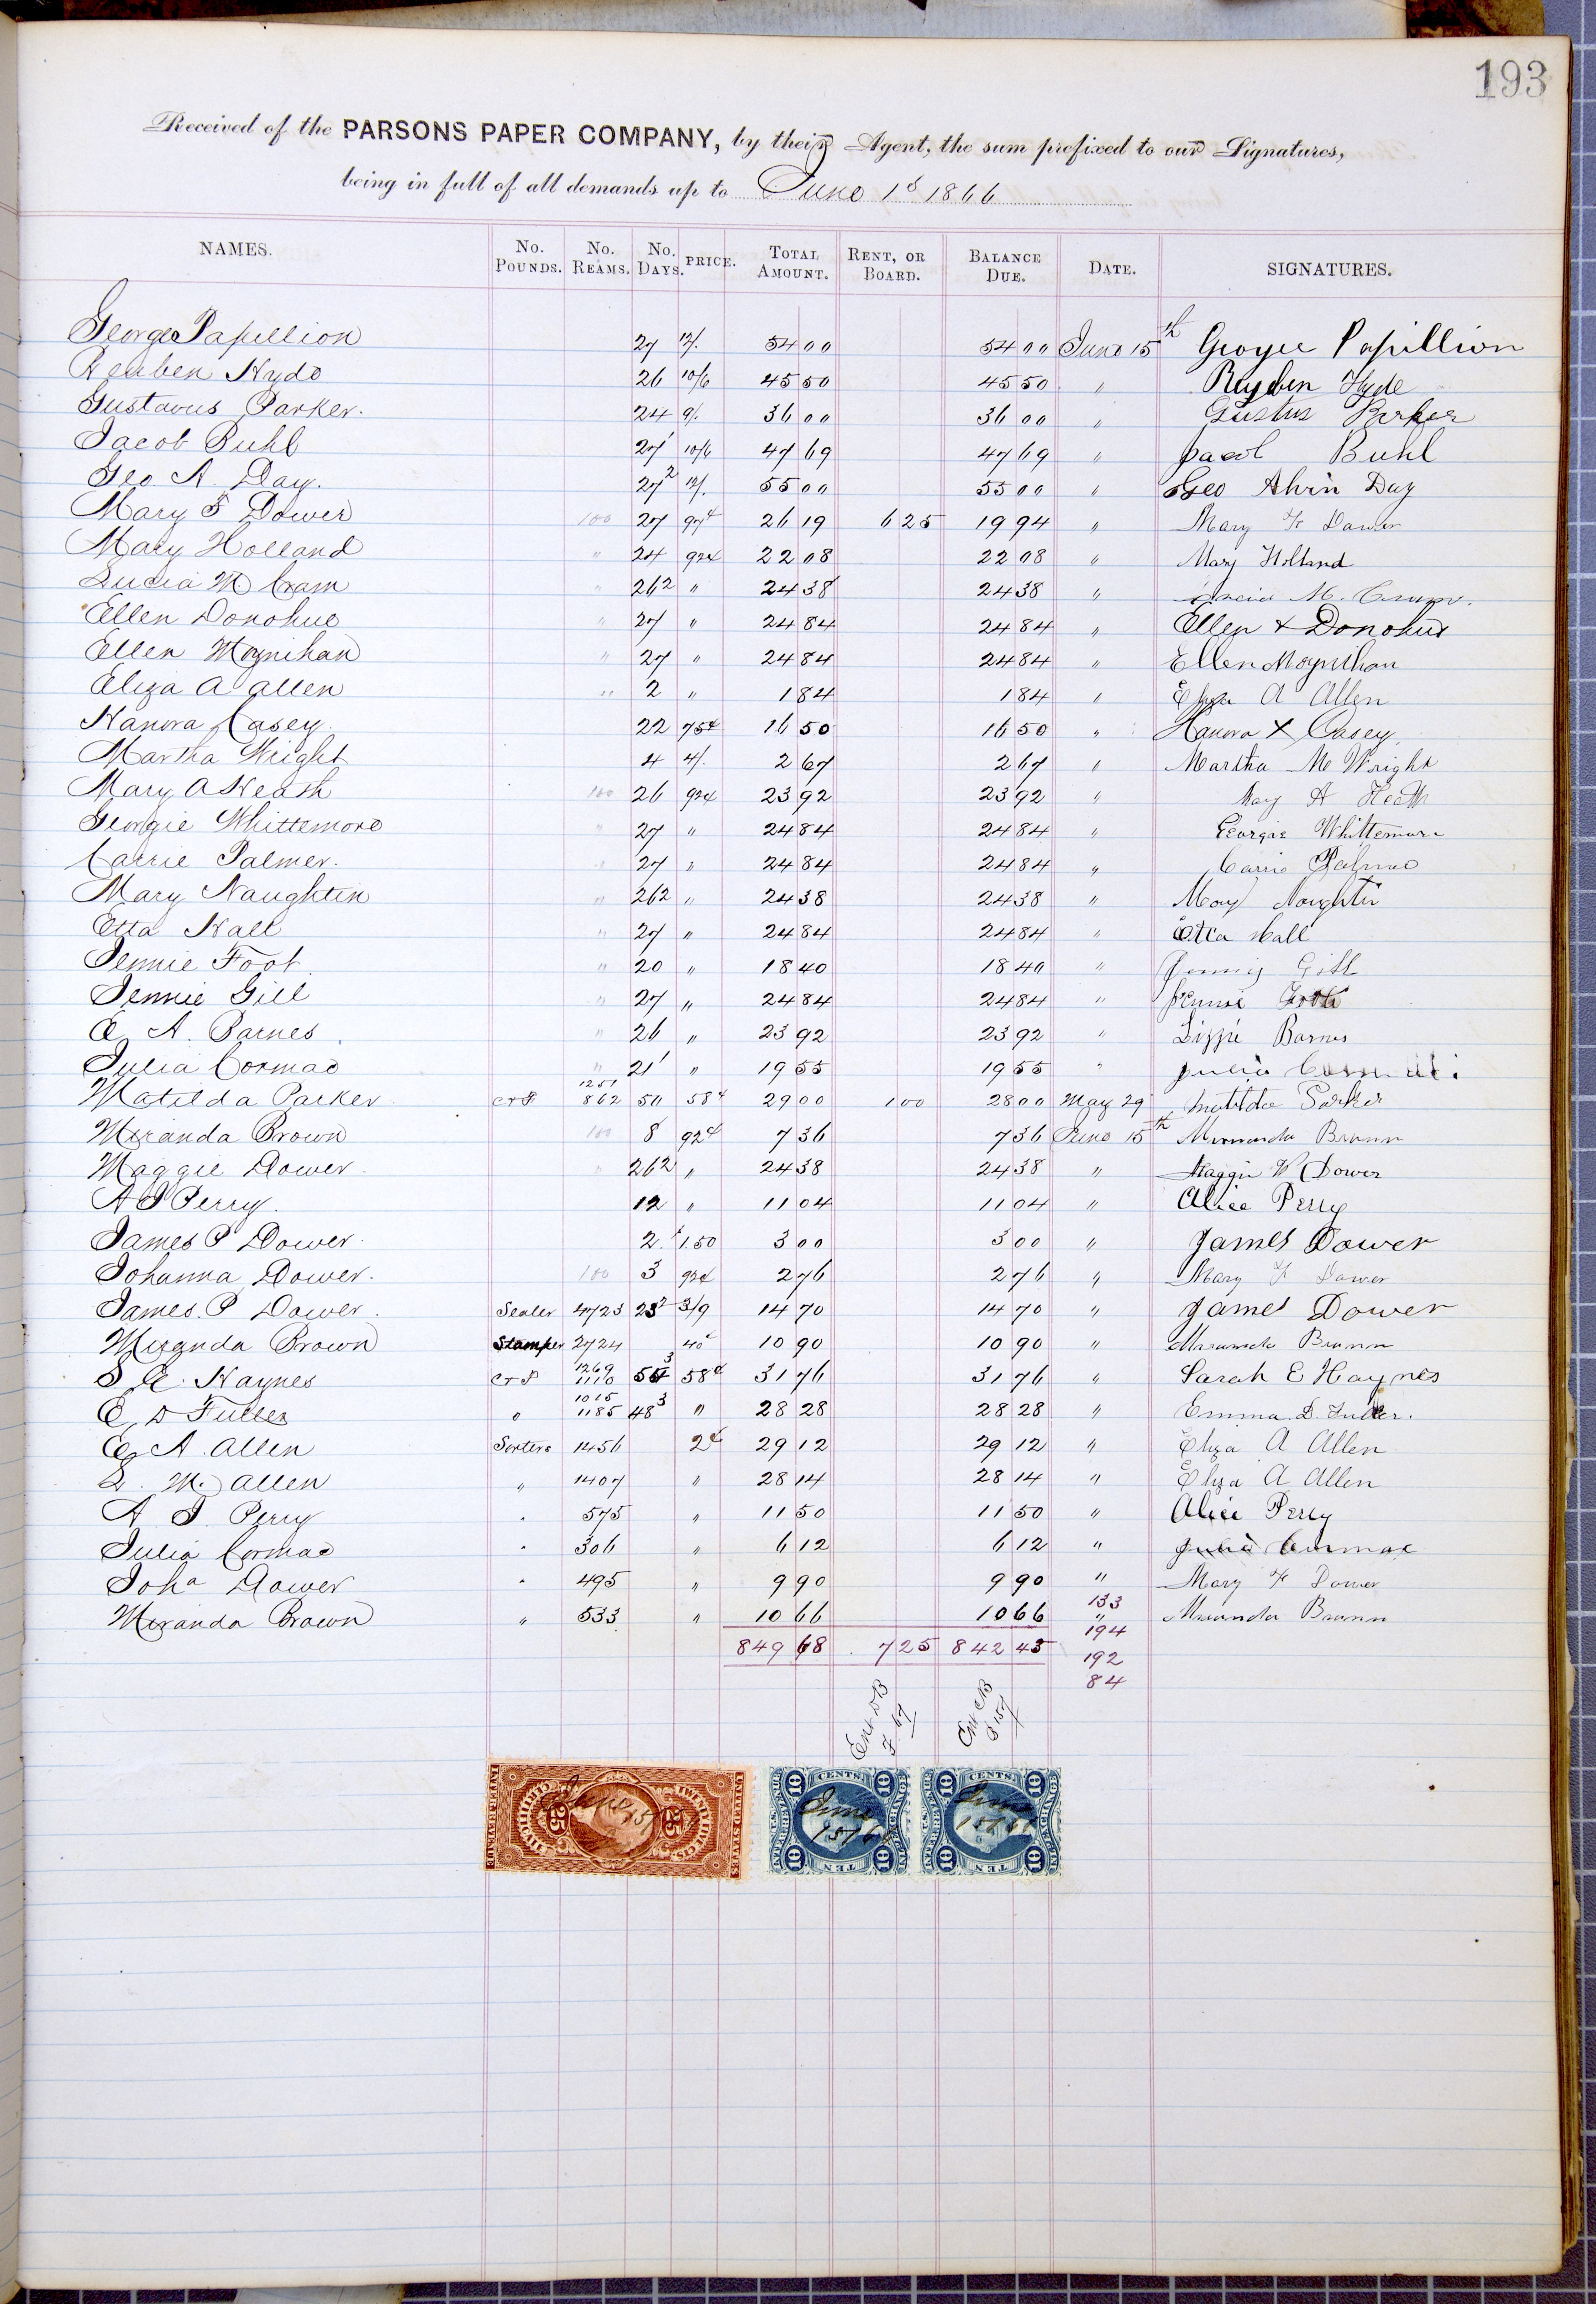 193
Received of the PARSONS PAPER COMPANY, by their Agent, the sum prefixed to our Signatures,
being in full of all demands up to June 1st 1866
NAMES. No. POUNDS. No. REAMS. No. DAYS. PRICE. TOTAL AMOUNT. RENT, OR BOARD. BALANCE DUE. DATE. SIGNATURES.
George Papillion 27 12/. 54 00 54 00 June 15th George Papillion
Reuben Hyde 26 10/6 45 50 45 50 " Reuben Hyde
Gustavus Parker. 24 9/. 36 00 36 00 " Gustus Parker
Jacob Buhl 27 1 10/6 47 69 47 69 " Jacob Buhl
Geo A. Day. 27 2 12/. 55 00 55 00 " Geo Alvin Day
Mary F Dower 100 27 97¢ 26 19 6 25 19 94 " Mary F Dower
Mary Holland " 24 92¢ 22 08 22 08 " Mary Holland
Lucia M. Cram " 26 2 " 24 38 24 38 " Lucia M. Cram.
Ellen Donohue " 27 " 24 84 24 84 " Ellen X Donohue
Ellen Moynihan " 27 " 24 84 24 84 " Ellen Moynihan
Eliza A Allen " 2 " 1 84 1 84 " Eliza A Allen
Hanora Casey 22 75¢ 16 50 16 50 " Hanora X Casey
Martha Wright 4 4/. 2 67 2 67 " Martha M Wright
Mary A Heath 100 26 92¢ 23 92 23 92 " Mary A Heath
Georgie Whittemore " 27 " 24 84 24 84 " Georgie Whittemore
Carrie Palmer. " 27 " 24 84 24 84 " Carrie Palmer
Mary Naughtin " 26 2 " 24 38 24 38 " Mary Naughtin
Etta Hall " 27 " 24 84 24 84 " Etta Hall
Jennie Foot. " 20 " 18 40 18 40 " Jennie Gill
Jennie Gill " 27 " 24 84 24 84 " Jennie Foote
E. A. Barnes " 26 " 23 92 23 92 " Lizzie Barnes
Julia Cormac " 21 1 " 19 55 19 55 " Julia
Matilda Parker C+P 1251 862 50 58¢ 29 00 1 00 28 00 May 29 Matilda Parker
Miranda Brown 100 8 92¢ 7 36 7 36 June 15th Miranda Brown
Maggie Dower " 26 2 " 24 38 24 38 " Maggie W Dower
A J Perry. 12 " 11 04 11 04 " Alice Perry
James P Dower. 2. 1.50 3 00 3 00 " James Dower
Johanna Dower. 100 3 92¢ 2 76 2 76 " Mary F Dower
James. P Dower. Sealer 4723 23 2 3/9 14 70 14 70 " James Dower
Miranda Brown Stamper 2724 40¢ 10 90 10 90 " Miranda Brown
S. E. Haynes C+P 1269 1110 54 3 58¢ 31 76 31 76 " Sarah E Haynes
E. D Fuller " 1015 1185 48 3 " 28 28 28 28 " Emma. D. Fuller.
E. A. Allen Sorters 1456 2¢ 29 12 29 12 " Eliza A Allen
L. M. Allen " 1407 " 28 14 28 14 " Eliza A Allen
A. J. Perry " 575 " 11 50 11 50 " Alice Perry
Julia Cormac " 306 " 6 12 6 12 " Julia Cormac
Joha Dower " 495 " 9 90 9 90 " Mary F Dower
Miranda Brown " 533 " 10 66 10 66 " Miranda Brown
133
194
849 68 7 25 842 43 192
84
Ent DB F. 67
Ent CB F 157
INTER. REVENUE UNITED STATES 25 25 June 15/66
CENTS. U.S. INTER. REV. EXCHANGE TEN 10 10 10 10 June 15/66
CENTS. U.S. INTER. REV. EXCHANGE TEN 10 10 10 10 June 15/66